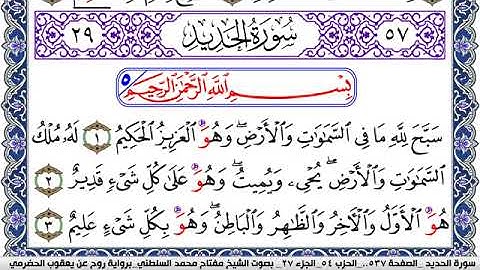 ٥٧ سُورَةُ الحَدِيدِ ٢٩
بِسْمِ اللَّهِ الرَّحْمَٰنِ الرَّحِيمِ ٥
سَبَّحَ لِلَّهِ مَا فِي السَّمَٰوَٰتِ وَالْأَرْضِ وَهُوَ الْعَزِيزُ الْحَكِيمُ ١ لَهُۥ مُلْكُ
السَّمَٰوَٰتِ وَالْأَرْضِ يُحْيِۦ وَيُمِيتُ وَهُوَ عَلَىٰ كُلِّ شَيْءٍ قَدِيرٌ ٢
هُوَ الْأَوَّلُ وَالْآخِرُ وَالظَّٰهِرُ وَالْبَاطِنُ وَهُوَ بِكُلِّ شَيْءٍ عَلِيمٌ ٣
سورة الحديد _ الصفحة ٥٣٧ _ الحزب ٥٤ _ الجزء ٢٧ _ بصوت الشيخ مفتاح محمد السلطني _ برواية روح عن يعقوب الحضرمي